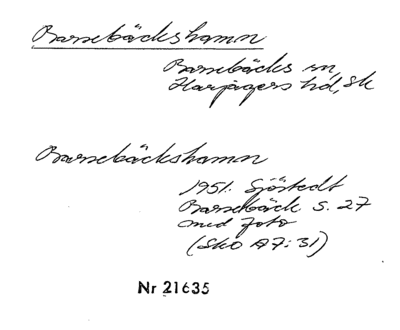 Barsebäckshamn
Barsebäcks sn,
Harjagers hd, Sk
Barsebäckshamn
1951. Sjöstedt
Barsebäck s. 27
med foto
(Sko A7:31)
Nr 21635